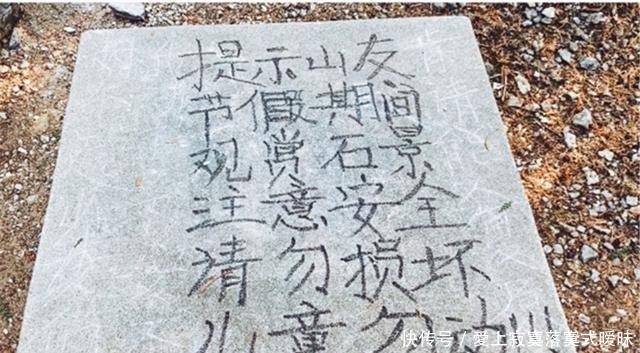 提示山友
节假期间
观赏石景
注意安全
请勿损坏
儿童勿
快传号/爱上寂寞落寞式暧昧